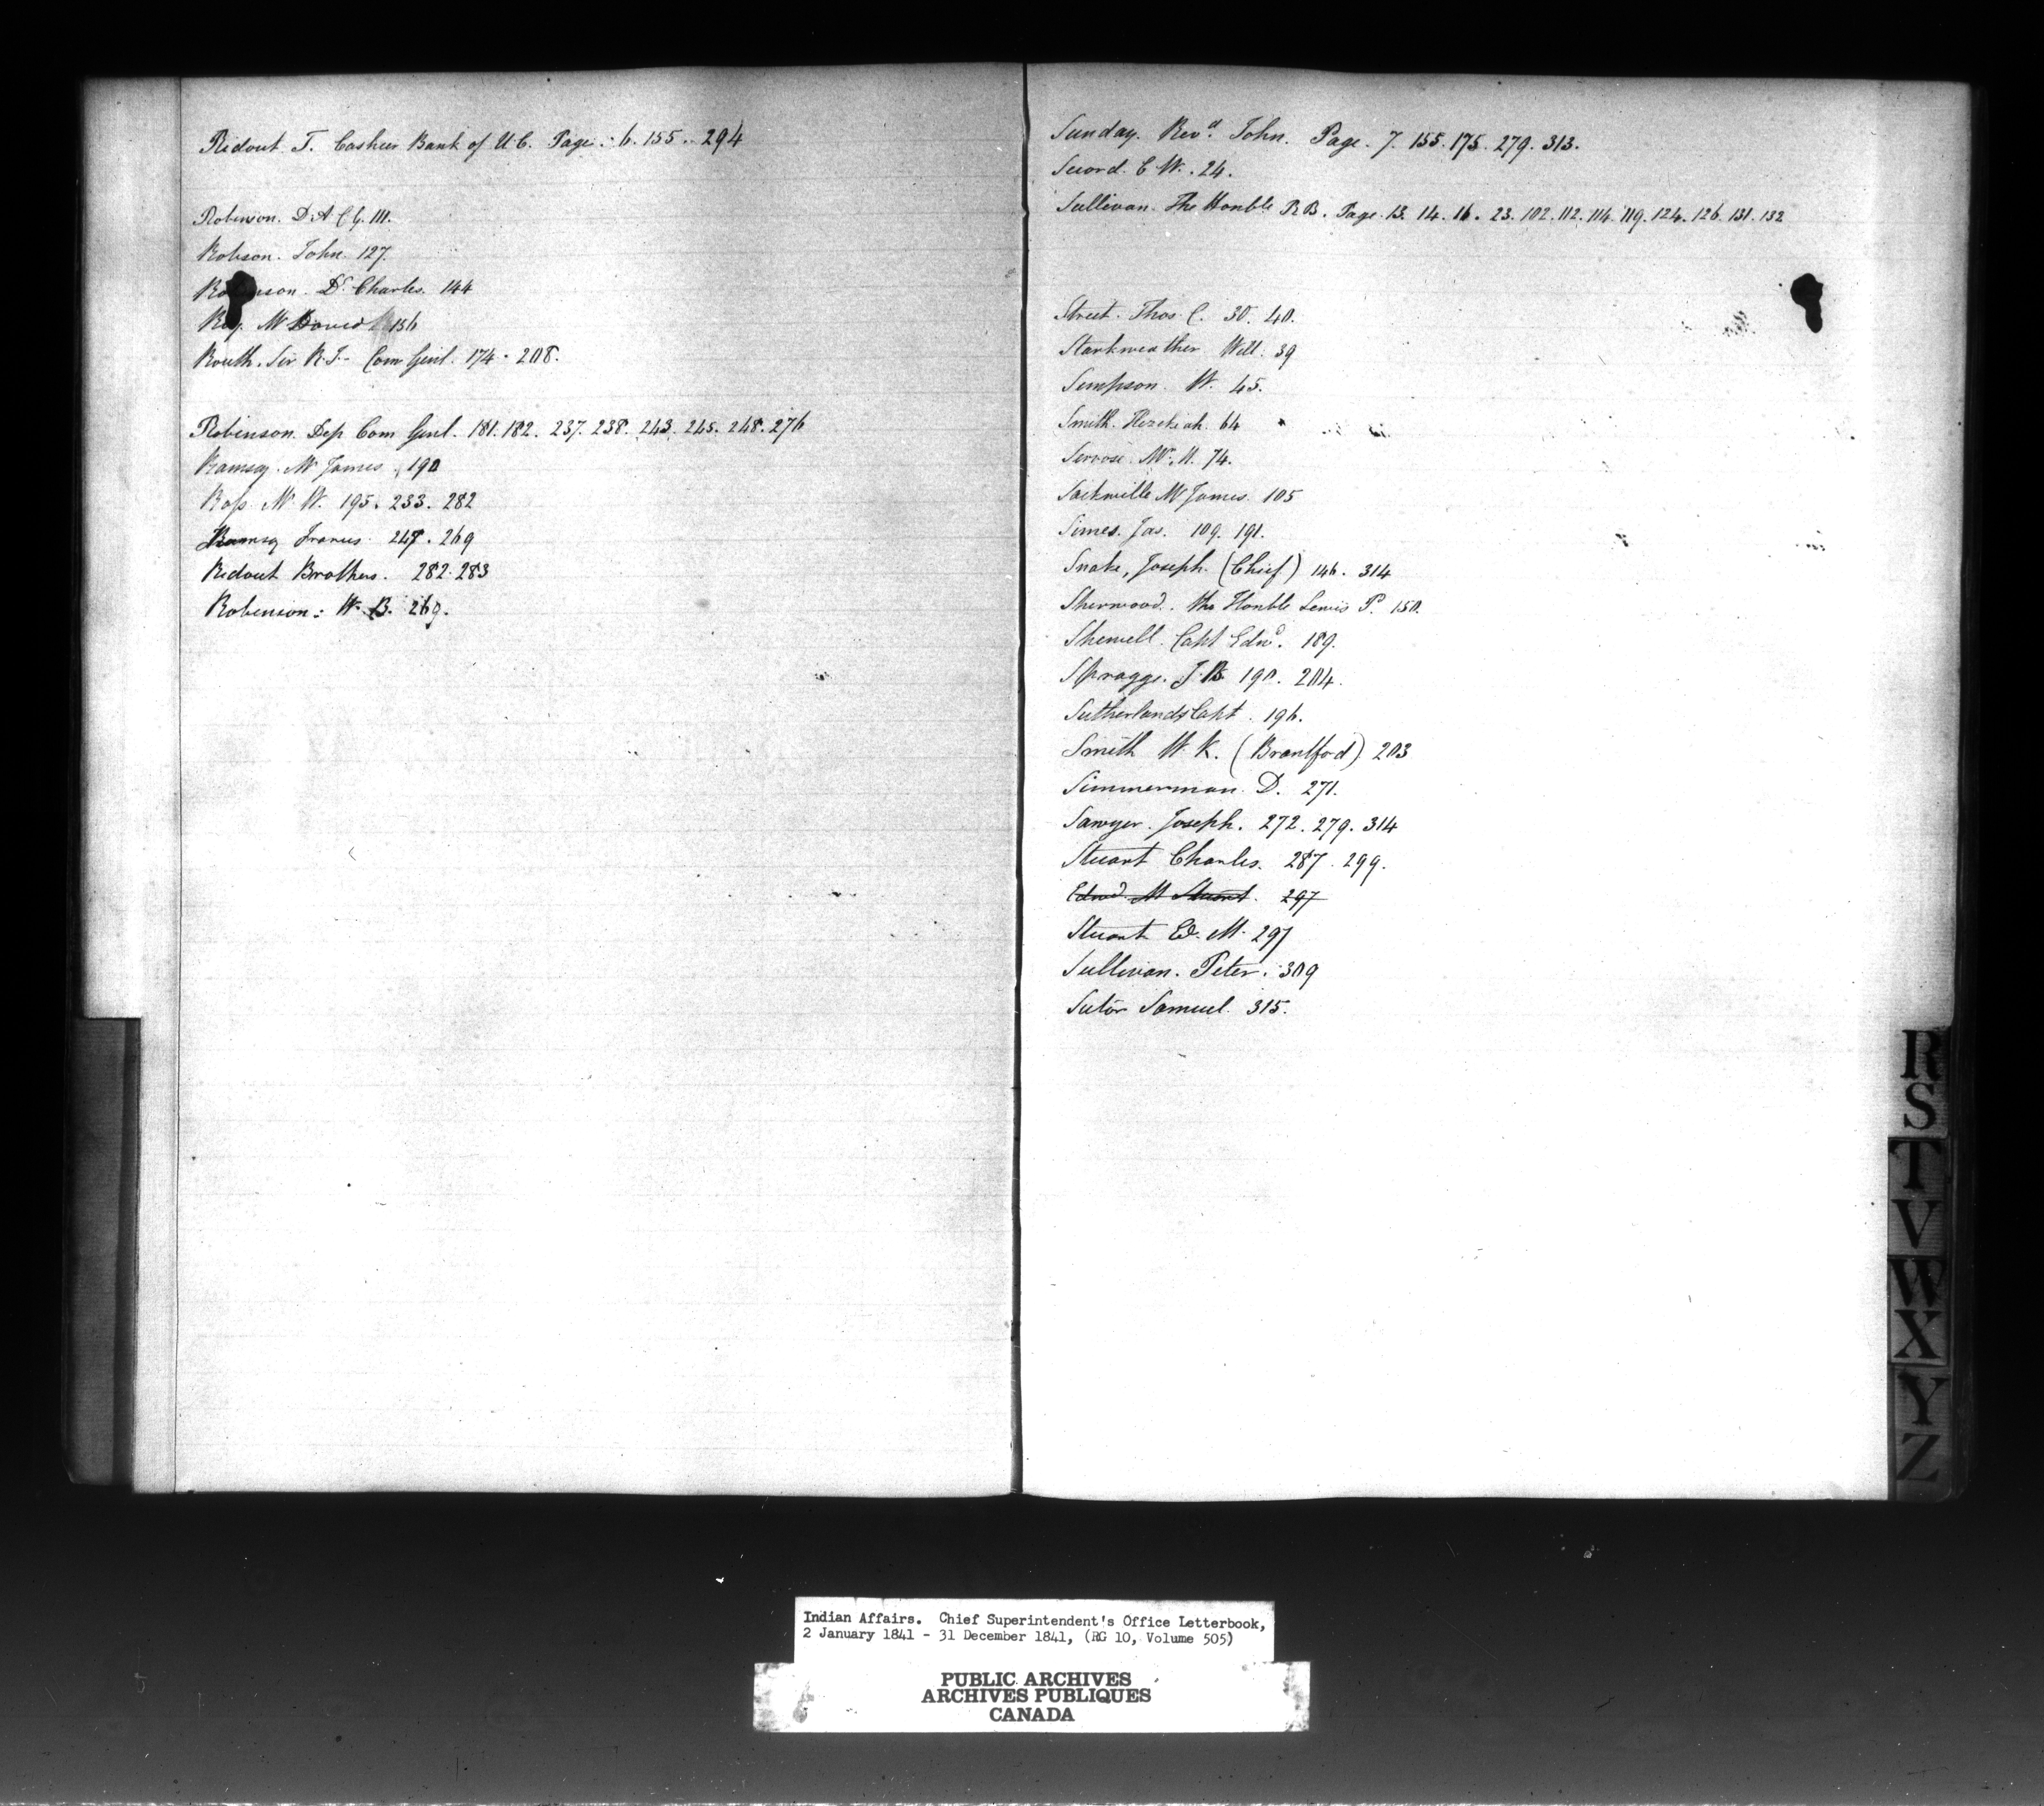 Ridout T. Cashier Bank of U.C. Page. 6. 155. 294
Robinson. D. A C G. 111.
Robson. John. 127.
Robinson. Dr. Charles. 144
Roy. Mr David 156
Routh. Sir R. I. Com Genl. 174. 208.
Robinson. Dep Com Genl. 181. 182. 237. 238. 243. 245. 248. 276
Ramsay. Mr James. 190
Ross. Mr W. 195. 233. 282
Ramsay Francis. 247. 269
Ridout Brothers. 282. 283
Robinson: W. B. 269.
Sunday. Revd. John. Page. 7. 155. 175. 279. 313.
C W. 24.
Sullivan. The Honble R B. Page. 13. 14. 16. 23. 102. 112. 114. 119. 124. 126. 131. 132
Street. Thos. C. 30. 40.
Starkweather Will. 39
Simpson. W. 45.
Smith. Hezekiah. 64
Servose. Mr. H. 74.
Sackville Mr James. 105
Simes. Jas. 109. 191.
Snake, Joseph. (Chief) 146. 314
Sherwood. the Honble Lewis P. 150.
Shewell. Capt Edwd. 189.
Spragge. J. B 190. 204.
Sutherland Capt. 196.
Smith W. K. (Brantford) 203
Simmerman. D. 271.
Sawyer. Joseph. 272. 279. 314
Stuart Charles. 287. 299.
Edwd. M Stuart. 297
Stuart Ed. M. 297
Sullivan. Peter. 309
Sutor Samuel. 315.
R
S
T
V
W
X
Y
Z
Indian Affairs. Chief Superintendent's Office Letterbook,
2 January 1841 - 31 December 1841, (RG 10, Volume 505)
PUBLIC ARCHIVES
ARCHIVES PUBLIQUES
CANADA